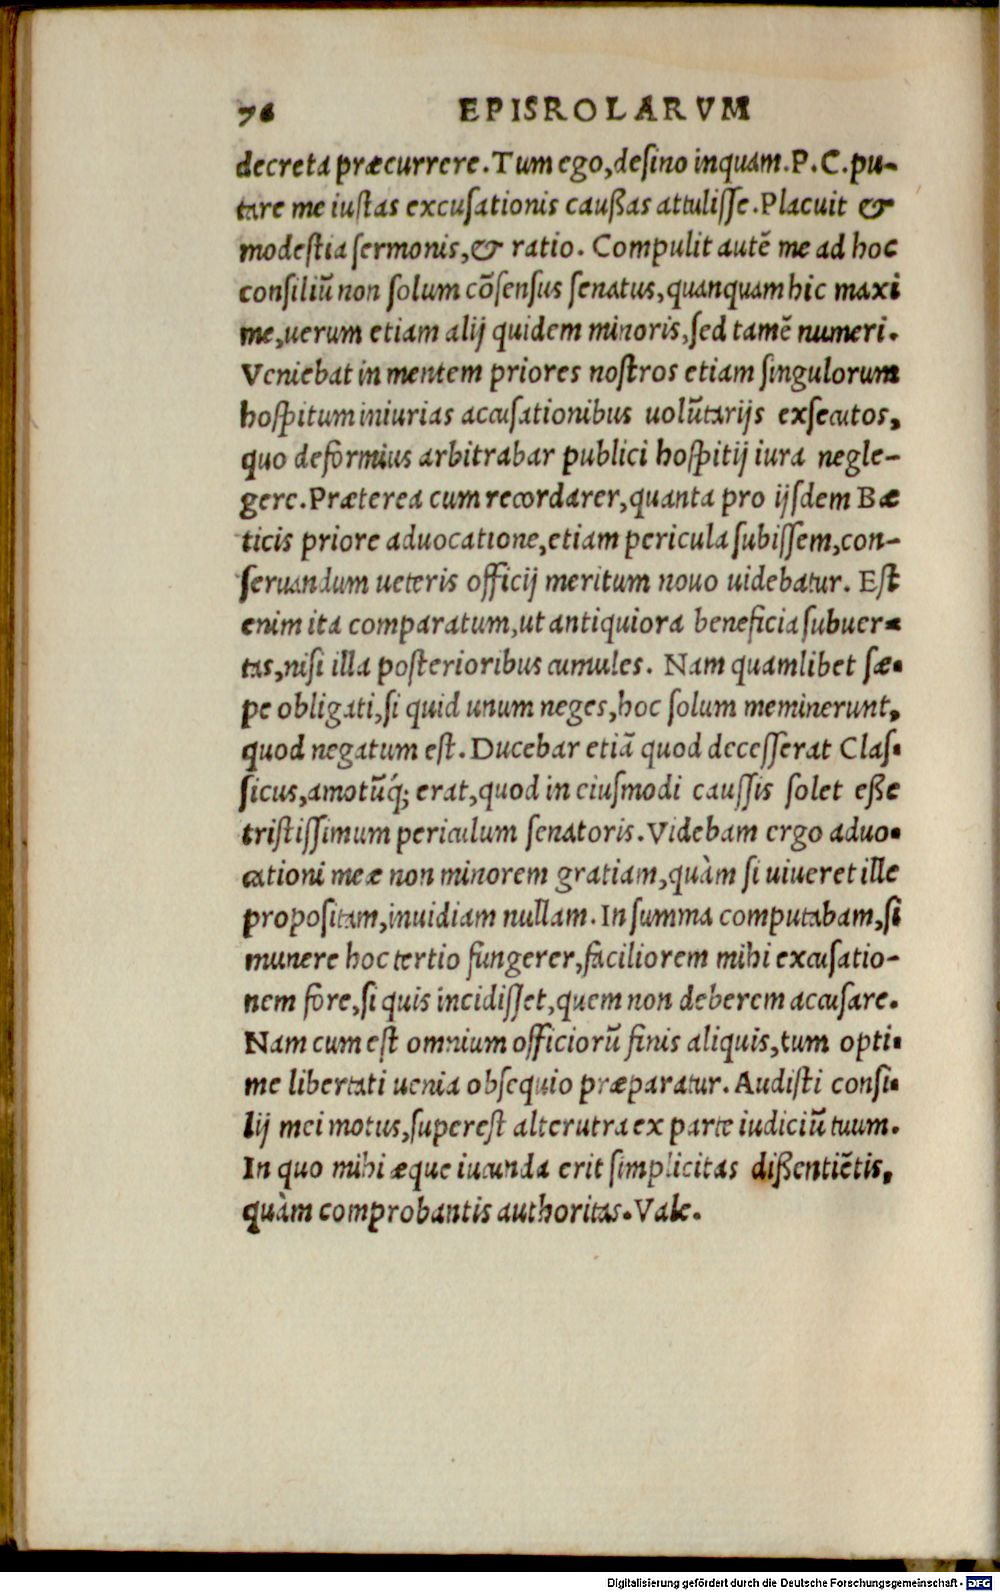 76 EPISROLARVM
decreta præcurrere. Tum ego, desino inquam. P. C. pu-
tare me iustas excusationis caußas attulisse. Placuit &
modestia sermonis, & ratio. Compulit autẽ me ad hoc
consiliũ non solum cõsensus senatus, quanquam hic maxi
me, uerum etiam alij quidem minoris, sed tamẽ numeri.
Veniebat in mentem priores nostros etiam singulorum
hospitum iniurias accusationibus uolũtarijs exsecutos,
quo deformius arbitrabar publici hospitij iura negle-
gere. Præterea cum recordarer, quanta pro ijsdem Bæ
ticis priore aduocatione, etiam pericula subissem, con-
seruandum ueteris officij meritum nouo uidebatur. Est
enim ita comparatum, ut antiquiora beneficia subuer-
tas, nisi illa posterioribus cumules. Nam quamlibet sæ-
pe obligati, si quid unum neges, hoc solum meminerunt,
quod negatum est. Ducebar etiã quod decesserat Clas-
sicus, amotũq́; erat, quod in eiusmodi caussis solet eße
tristissimum periculum senatoris. Videbam ergo aduo-
cationi meæ non minorem gratiam, quàm si uiueret ille
propositam, inuidiam nullam. In summa computabam, si
munere hoc tertio fungerer, faciliorem mihi excusatio-
nem fore, si quis incidisset, quem non deberem accusare.
Nam cum est omnium officiorũ finis aliquis, tum opti-
me libertati uenia obsequio præparatur. Audisti consi-
lij mei motus, superest alterutra ex parte iudiciũ tuum.
In quo mihi æque iucunda erit simplicitas dißentiẽtis,
quàm comprobantis authoritas. Vale.
Digitalisierung gefördert durch die Deutsche Forschungsgemeinschaft - DFG